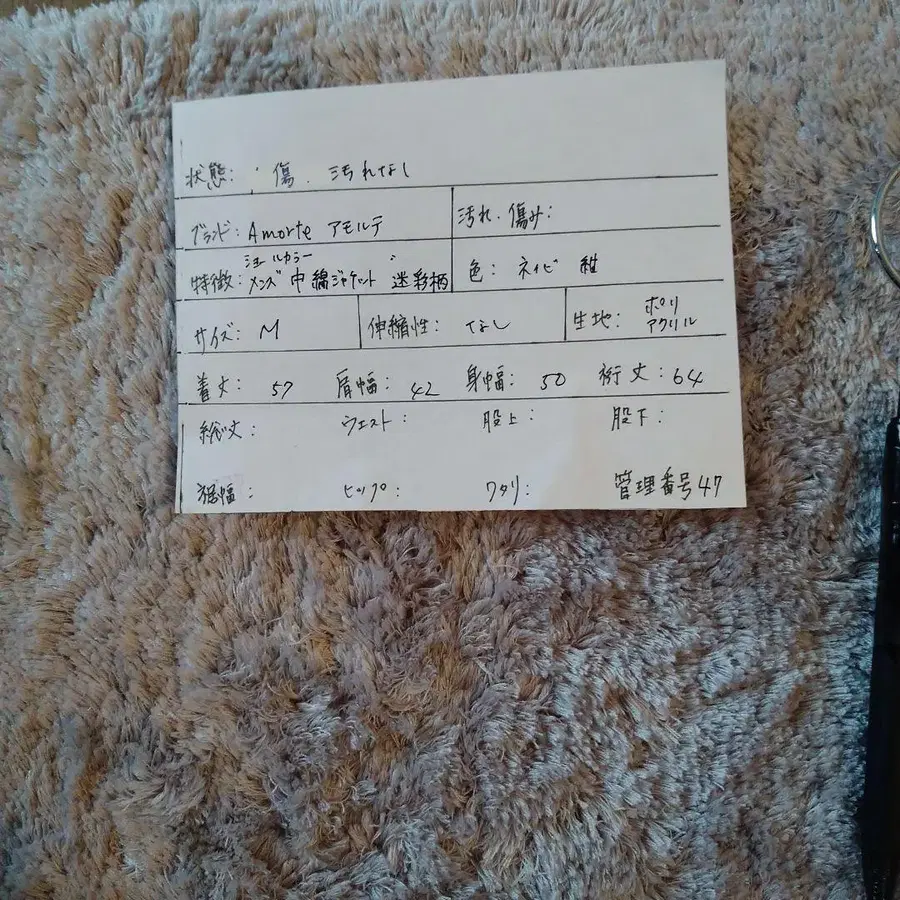 状態: 傷. 汚れなし
ブランド: Amorte アモルテ 汚れ. 傷み:
ショールカラー
特徴: メンズ 中綿ジャケット 迷彩柄 色: ネイビ 紺
サイズ: M 伸縮性: なし 生地: ポリ アクリル
着丈: 57 肩幅: 42 身幅: 50 裄丈: 64
総丈: ウエスト: 股上: 股下:
裾幅: ヒップ: ワタリ: 管理番号47